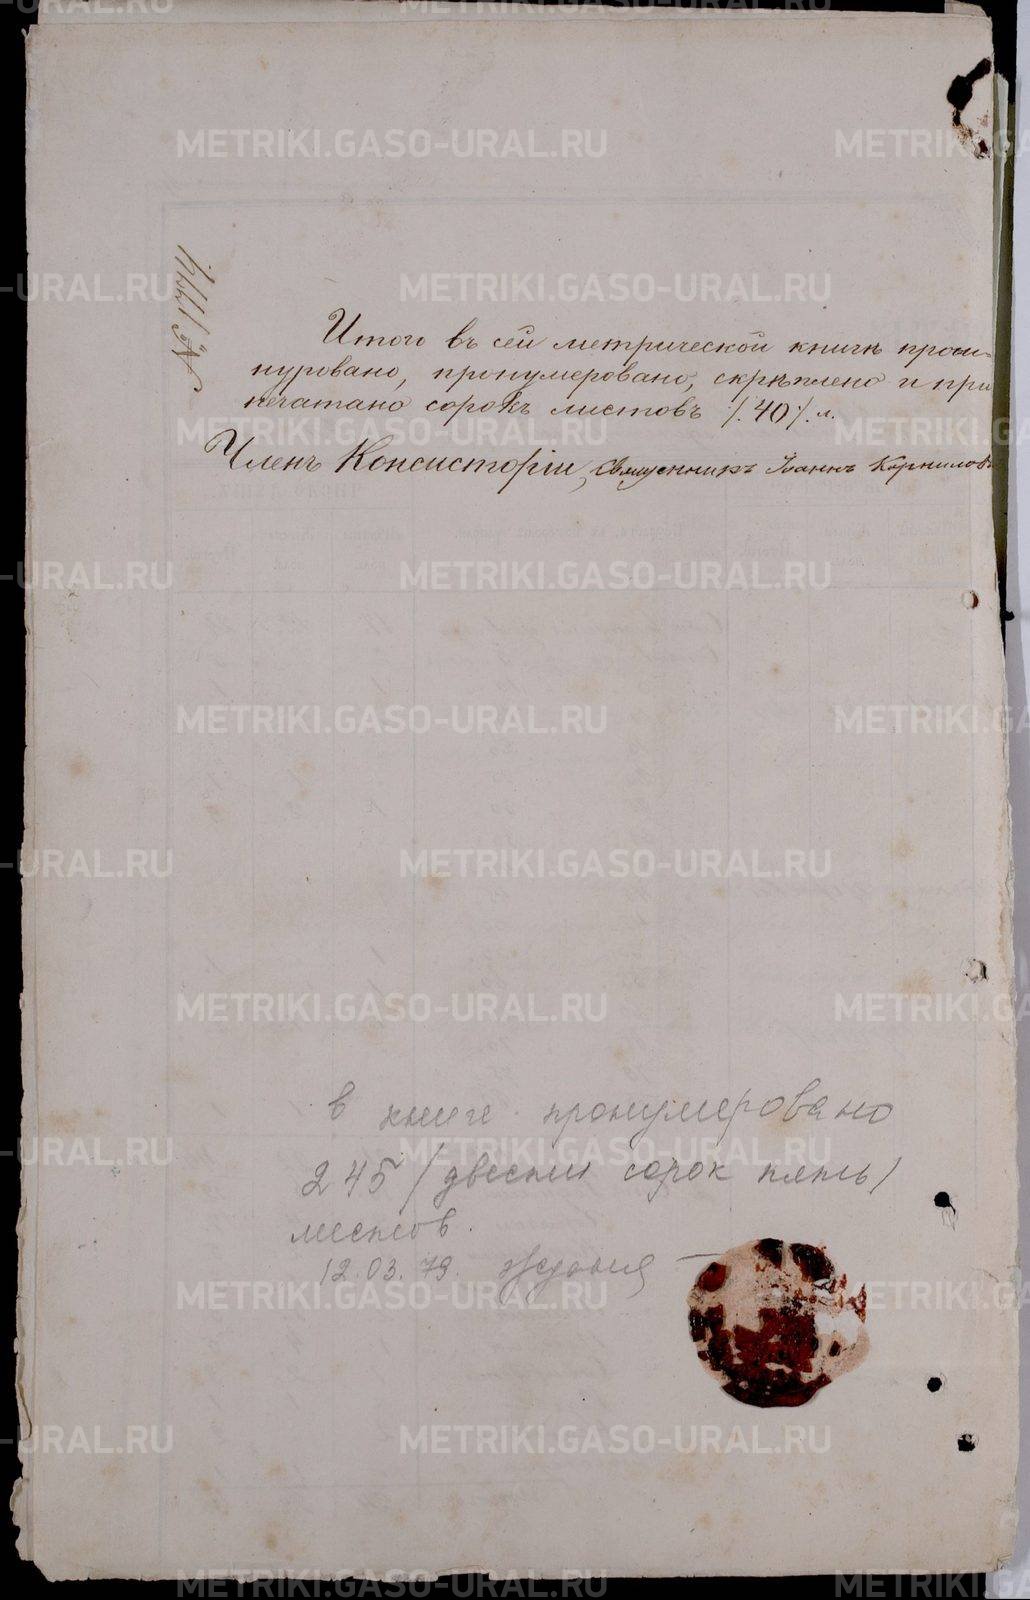 Итого въ сей метрической книгѣ прошн-
нуровано, пронумеровано, скрѣплено и при
печатано сорокъ листовъ /.40/. л.
Членъ Консисторіи, Священникъ Іоаннъ Корниловъ
в книге пронумеровано
245 /двести сорок пять/
листов.
12.03.79.